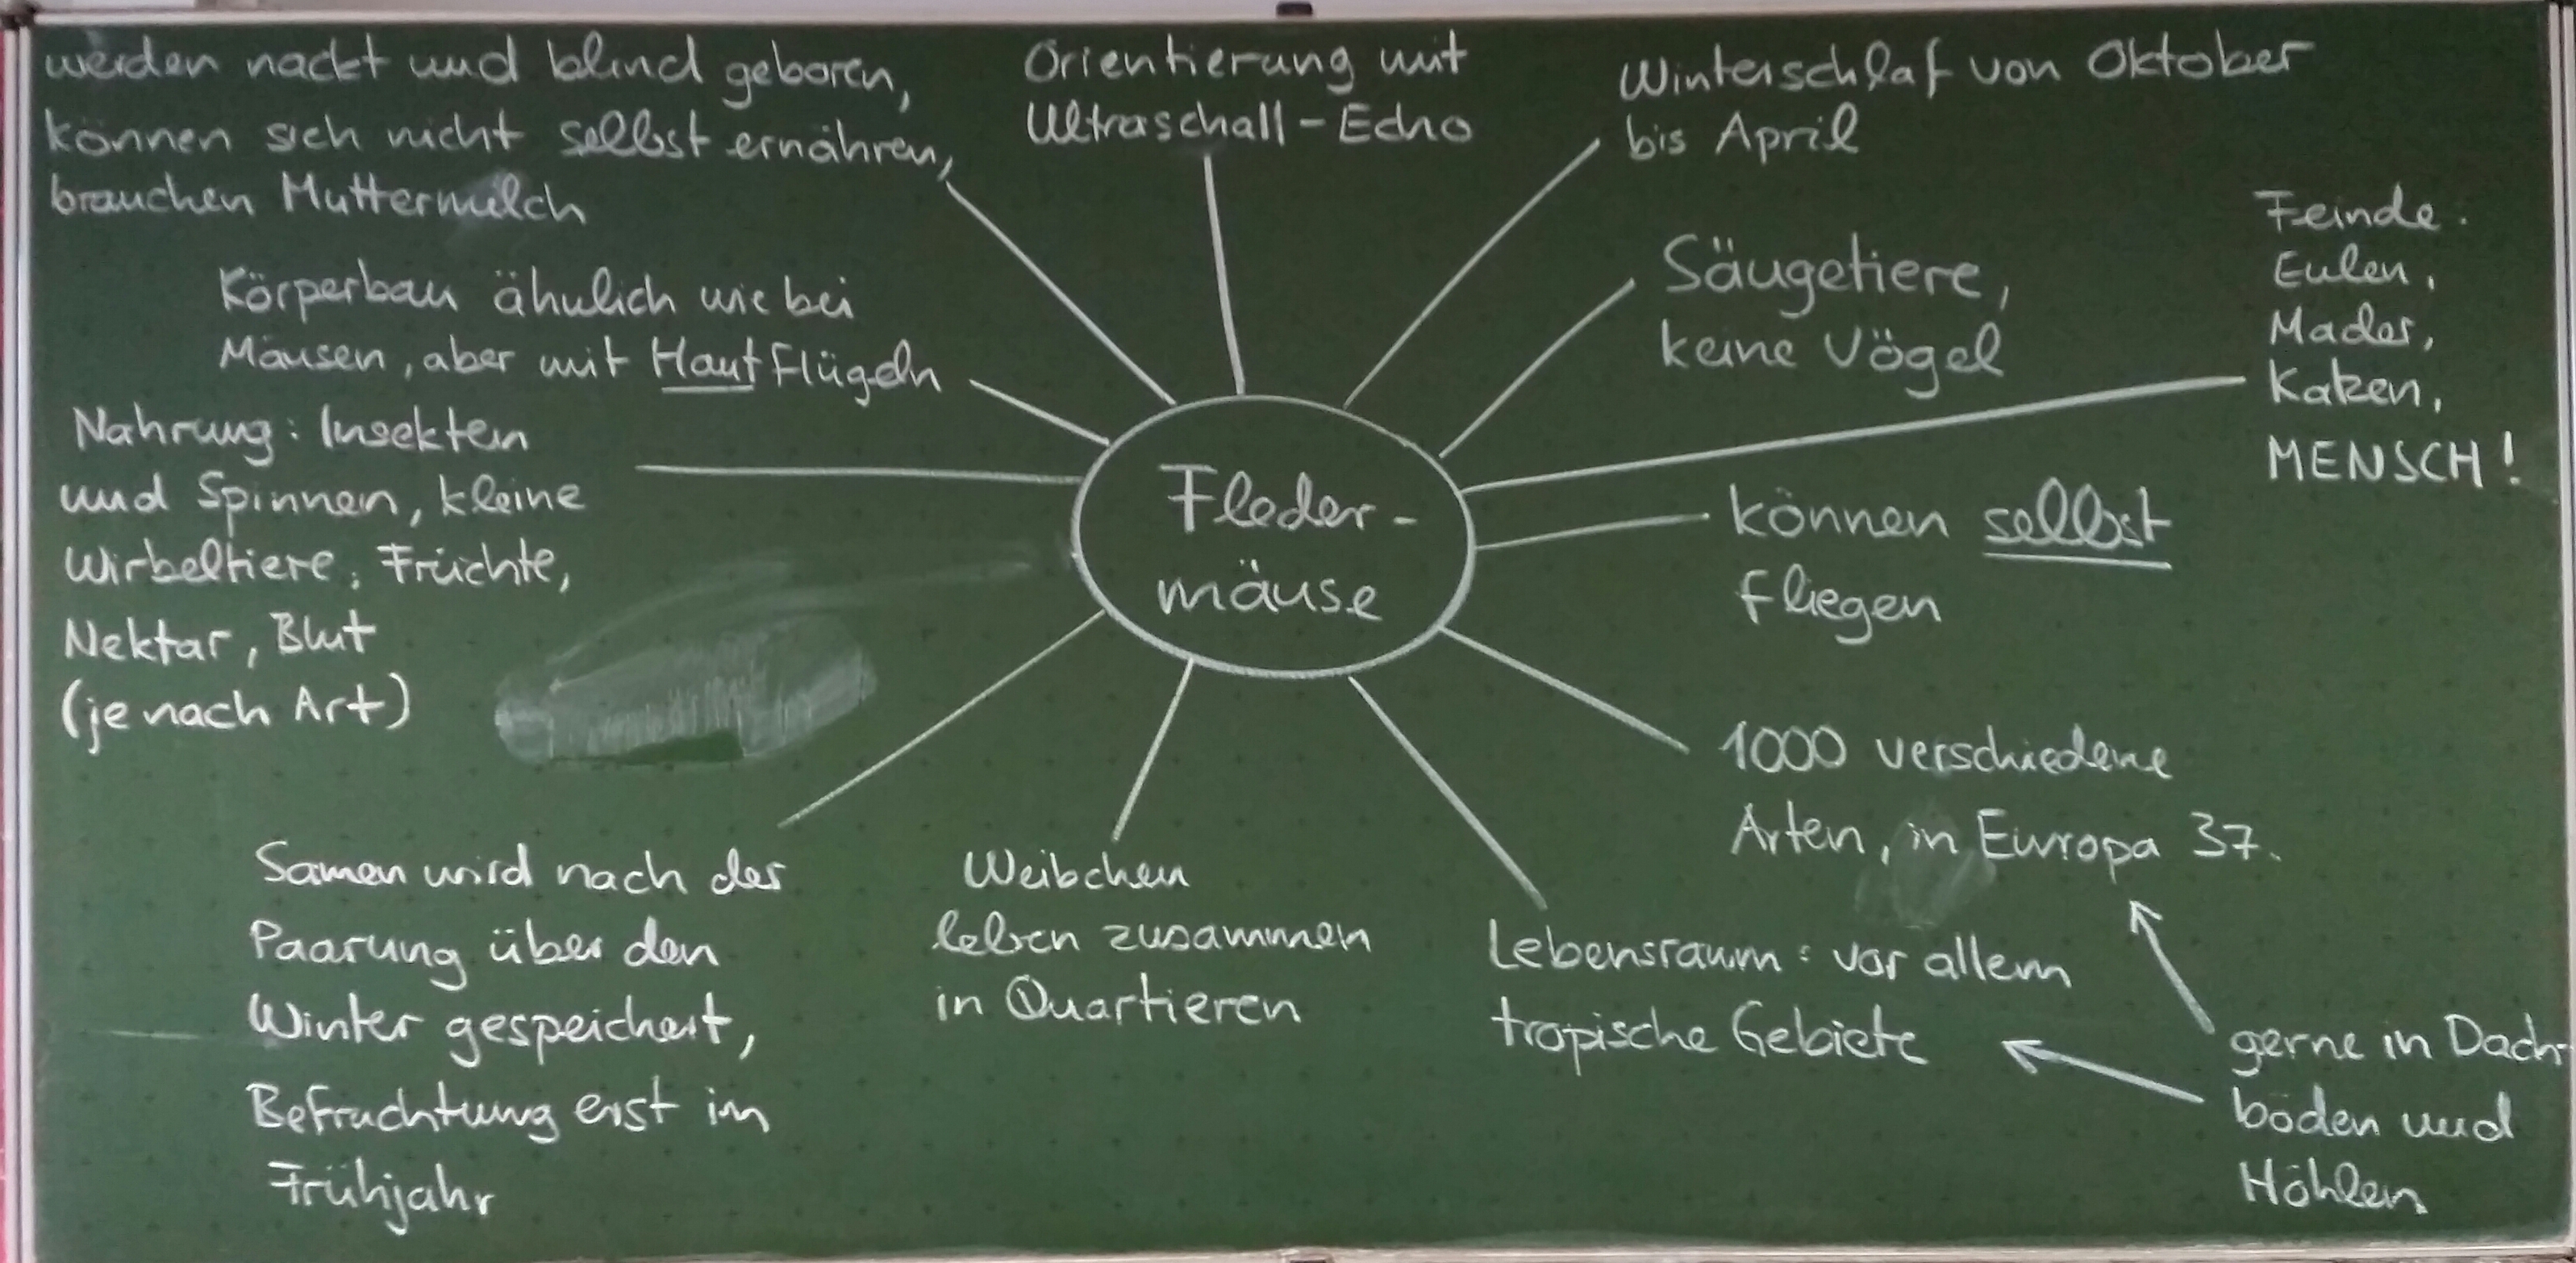 werden nackt und blind geboren,
können sich nicht selbst ernähren,
brauchen Muttermilch
Orientierung mit
Ultraschall-Echo
Winterschlaf von Oktober
bis April
Feinde:
Eulen,
Mader,
Katzen,
MENSCH!
Säugetiere,
keine Vögel
Körperbau ähnlich wie bei
Mäusen, aber mit Hautflügeln
Nahrung: Insekten
und Spinnen, kleine
Wirbeltiere, Früchte,
Nektar, Blut
(je nach Art)
Fleder-
mäuse
können selbst
fliegen
1000 verschiedene
Arten, in Europa 37.
Samen wird nach der
Paarung über den
Winter gespeichert,
Befruchtung erst im
Frühjahr
Weibchen
leben zusammen
in Quartieren
Lebensraum: vor allem
tropische Gebiete
gerne in Dach-
böden und
Höhlen